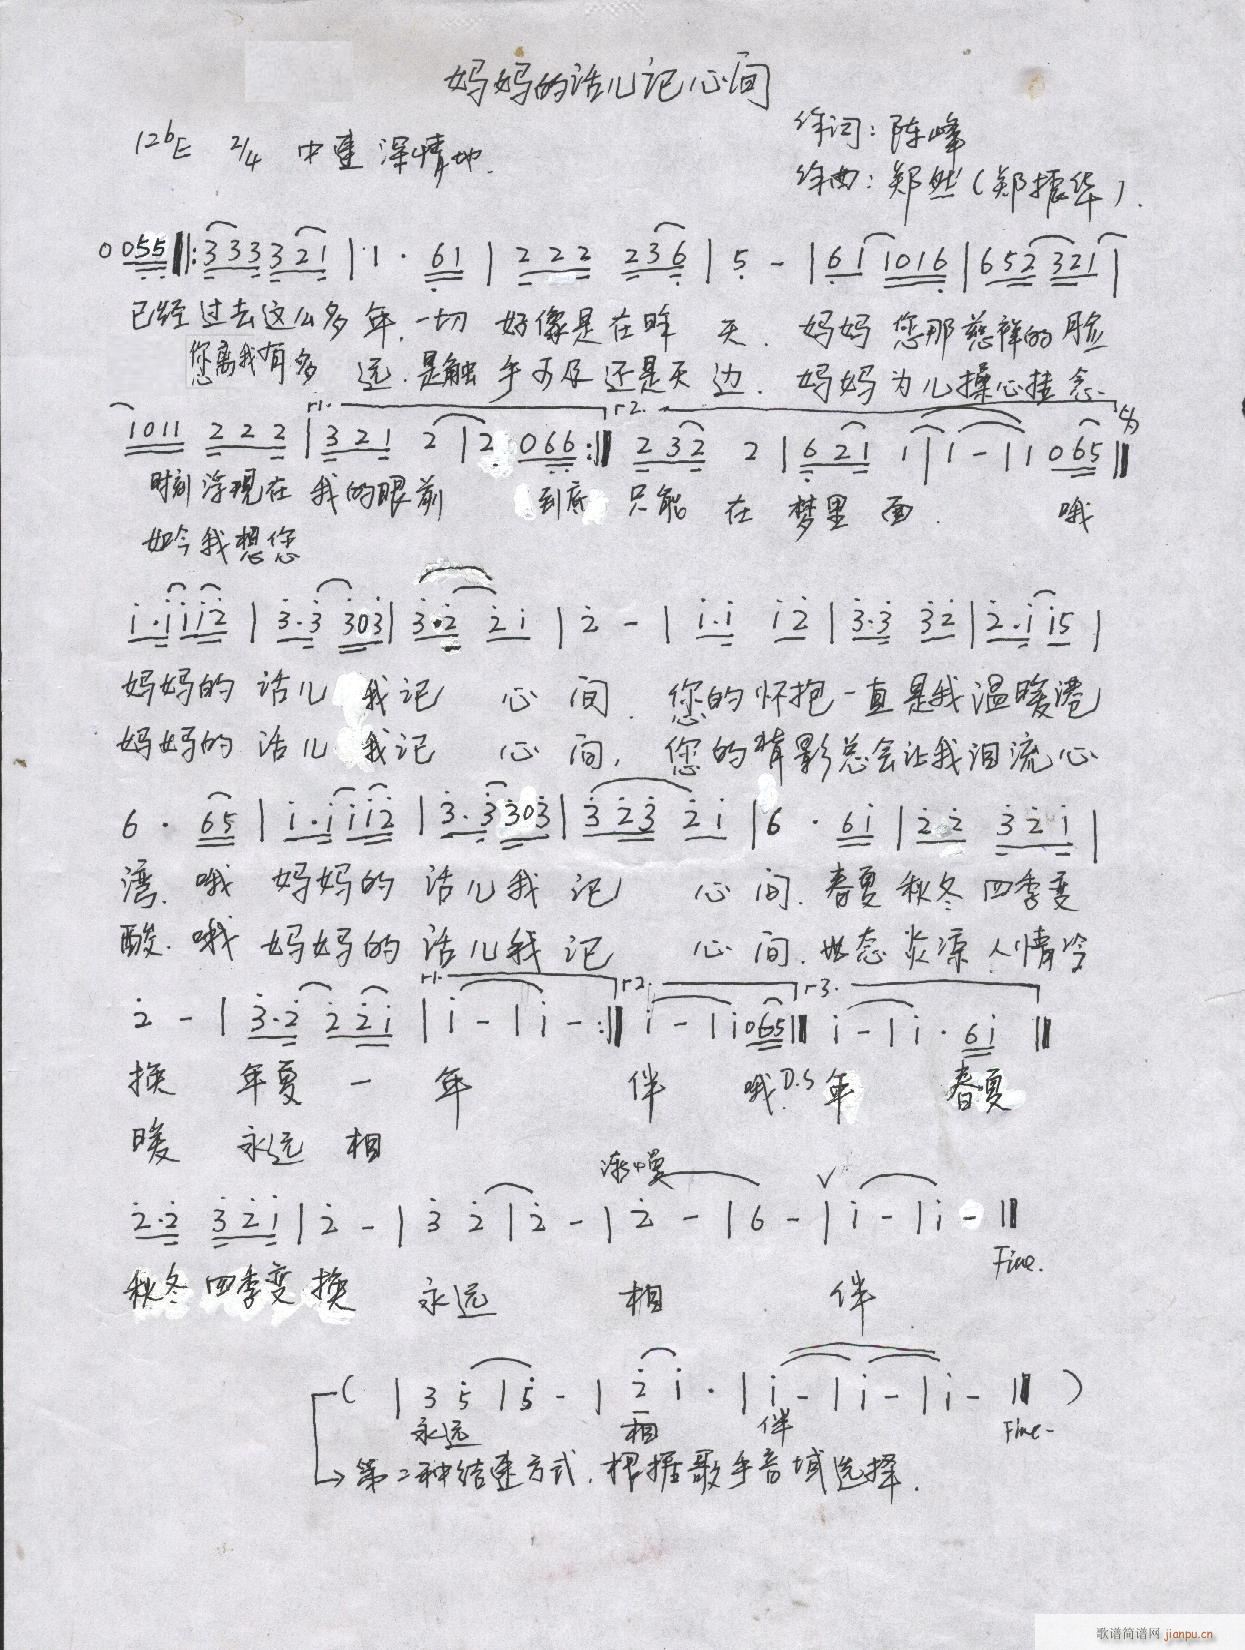 妈妈的话儿记心间
作词：陈峰
1=♭E 2/4 中速 深情地.
作曲：郑然（郑振华）.
0 055 ‖: 333 321 | 1 · 61 | 222 236 | 5 - | 61 1016 | 652 321 |
已经过去这么多年，一切 好像是在昨 天. 妈妈 您那慈祥的脸
您离我有多 远. 是触手可及还是天边. 妈妈为儿操心挂念.
1011 222 | 1. 321 2 | 2 066 :‖ 2. 232 2 | 621 1 | 1 - | 1 065 ‖
时刻浮现在 我的眼前 到底 只能 在 梦里面. 哦
如今我想您
1·1 112 | 3·3 303 | 3·2 21 | 2 - | 1·1 12 | 3·3 32 | 2·1 15 |
妈妈的 话儿 我记 心 间. 您的怀抱一直是我温暖港
妈妈的 话儿 我记 心 间, 您的背影总会让我泪流心
6 · 65 | 1·1 112 | 3·3 303 | 323 21 | 6 · 61 | 22 321 |
湾. 哦 妈妈的 话儿我 记 心 间. 春夏秋冬 四季变
酸. 哦 妈妈的 话儿我 记 心 间. 世态炎凉 人情冷
2 - | 3·2 221 | 1. 1 - | 1 - :‖ 2. 1 - | 1 065 ‖ 3. 1 - | 1 · 61 ‖
换 年夏 一 年 伴 哦 D.S 年 春夏
暖 永远 相
渐慢
2·2 321 | 2 - | 3 2 | 2 - | 2 - | 6 - | 1 - | 1 - ‖
Fine.
秋冬 四季变 换 永远 相 伴
( | 3 5 | 5 - | 2 1 · | 1 - | 1 - | 1 - ‖ )
永远 相 伴 Fine.
第二种结速方式. 根据歌手音域选择.
歌谱简谱网 jianpu.cn